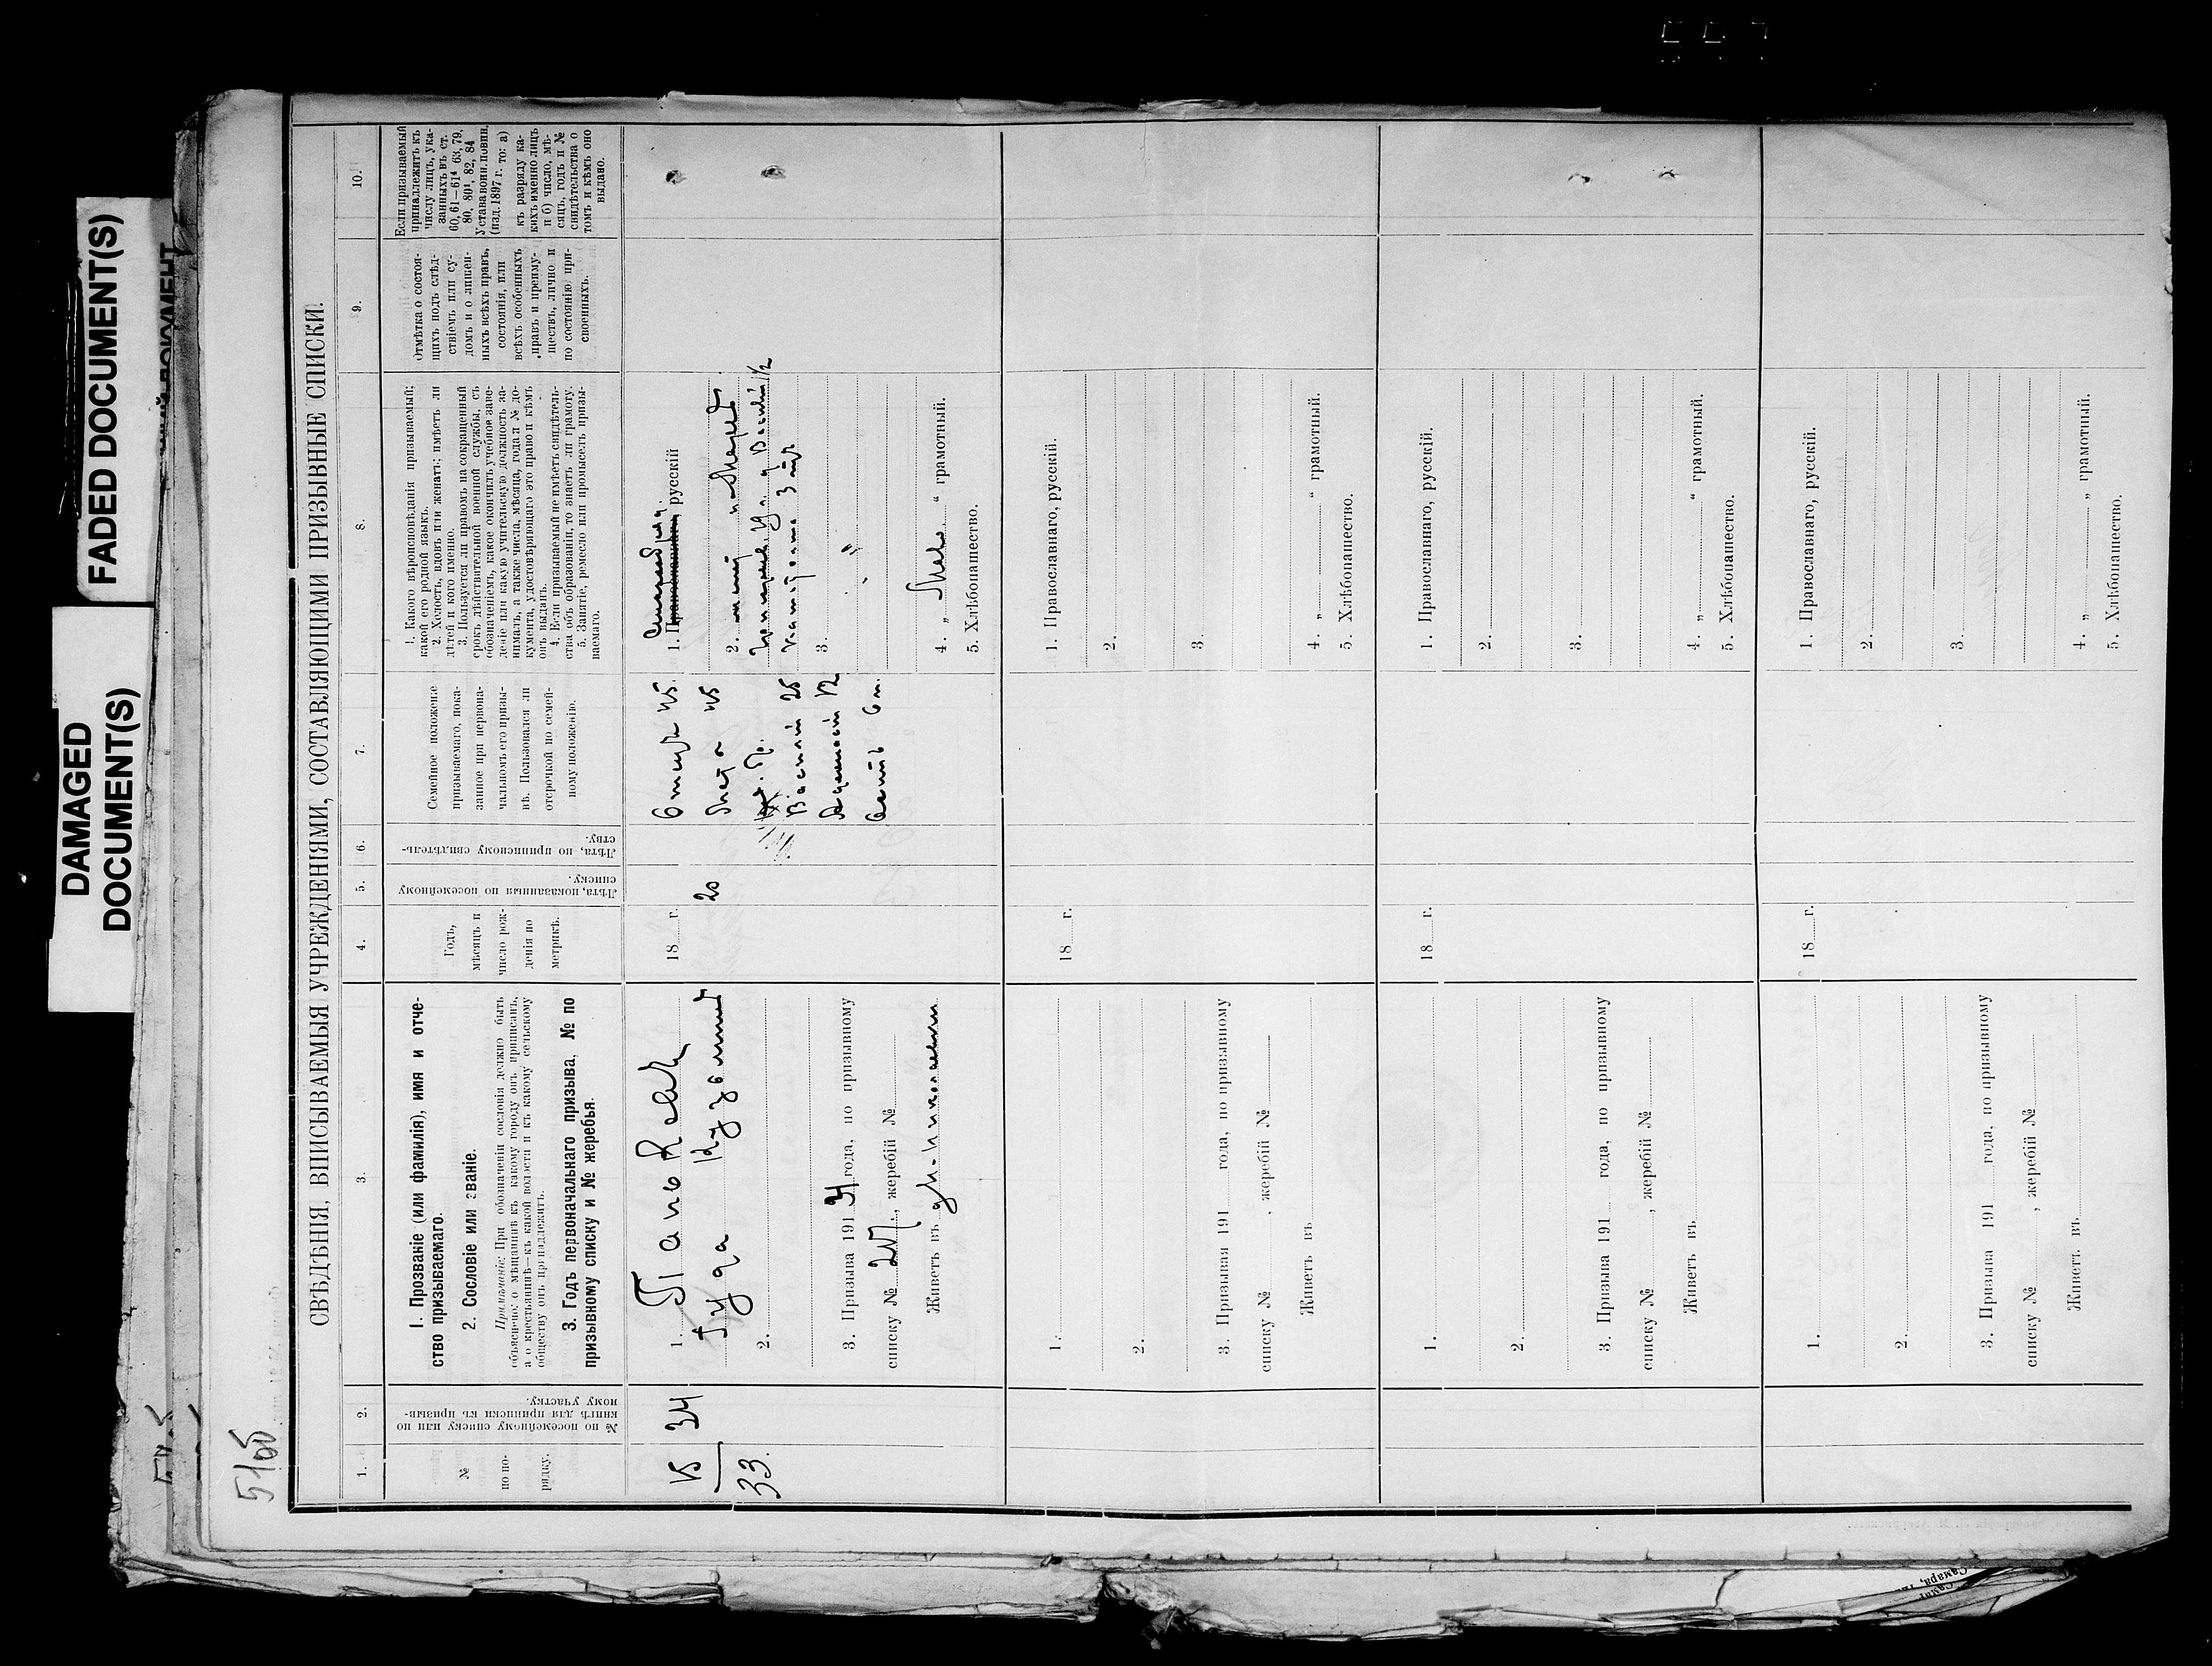 FADED DOCUMENT(S)
DAMAGED
DOCUMENT(S)
51об
СВѢДѢНІЯ, ВПИСЫВАЕМЫЯ УЧРЕЖДЕНІЯМИ, СОСТАВЛЯЮЩИМИ ПРИЗЫВНЫЕ СПИСКИ.
1.
2.
3.
4.
5.
6.
7.
8.
9.
10.
№
по по-
рядку.
№ по посемейному списку или по
книгѣ для приписки къ призыв-
ному участку.
1. Прозваніе (или фамилія), имя и отче-
ство призываемаго.
2. Сословіе или званіе.
Примѣчаніе: При обозначеніи сословія должно быть
объяснено: о мѣщанинѣ къ какому городу онъ приписанъ,
а о крестьянинѣ—къ какой волости и къ какому сельскому
обществу онъ принадлежитъ.
3. Годъ первоначальнаго призыва, № по
призывному списку и № жеребья.
Годъ,
мѣсяцъ и
число рож-
денія по
метрикѣ.
Лѣта, показанныя по посемейному
списку.
Лѣта, по приписному свидѣтель-
ству.
Семейное положеніе
призываемаго, пока-
занное при первона-
чальномъ его призы-
вѣ. Пользовался ли
отсрочкой по семей-
ному положенію.
1. Какого вѣроисповѣданія призываемый;
какой его родной языкъ.
2. Холостъ, вдовъ или женатъ; имѣетъ ли
дѣтей и кого именно.
3. Пользуется ли правомъ на сокращенный
срокъ дѣйствительной военной службы, съ
обозначеніемъ, какое окончилъ учебное заве-
деніе или какую учительскую должность за-
нималъ, а также числа, мѣсяца, года и № до-
кумента, удостовѣряющаго это право и кѣмъ
онъ выданъ.
4. Если призываемый не имѣетъ свидѣтель-
ства объ образованіи, то знаетъ ли грамоту.
5. Занятіе, ремесло или промыселъ призы-
ваемаго.
Отмѣтка о состоя-
щихъ подъ слѣд-
ствіемъ или су-
домъ и о лишен-
ныхъ всѣхъ правъ,
состоянія, или
всѣхъ особенныхъ
правъ и преиму-
ществъ, лично и
по состоянію при-
своенныхъ.
Если призываемый
принадлежитъ къ
числу лицъ, ука-
занныхъ въ ст.
60, 61—61⁴ 63, 79,
80, 80¹, 82, 84
Устава воин. повин.
(изд. 1897 г. то: а)
къ разряду ка-
кихъ именно лицъ
и б) число, мѣ-
сяцъ, годъ и №
свидѣтельства о
томъ и кѣмъ оно
выдано.
33.
34
1.
Гуда
2.
3. Призыва 191 года, по призывному
списку № , жеребій №
Живетъ въ
18 г.
20
Василій 25
1. Православнаго русскій
2.
3.
4. „ “ грамотный.
5. Хлѣбопашество.
1.
2.
3. Призывая 191 года, по призывному
списку № , жеребій №
Живетъ въ
18 г.
1. Православнаго, русскій.
2.
3.
4. „ “ грамотный.
5. Хлѣбопашество.
1.
2.
3. Призыва 191 года, по призывному
списку № , жеребій №
Живетъ въ
18 г.
1. Православнаго, русскій.
2.
3.
4. „ “ грамотный.
5. Хлѣбопашество.
1.
2.
3. Призыва 191 года, по призывному
списку № , жеребій №
Живетъ въ
18 г.
1. Православнаго, русскій.
2.
3.
4. „ „ грамотный.
5. Хлѣбопашество.